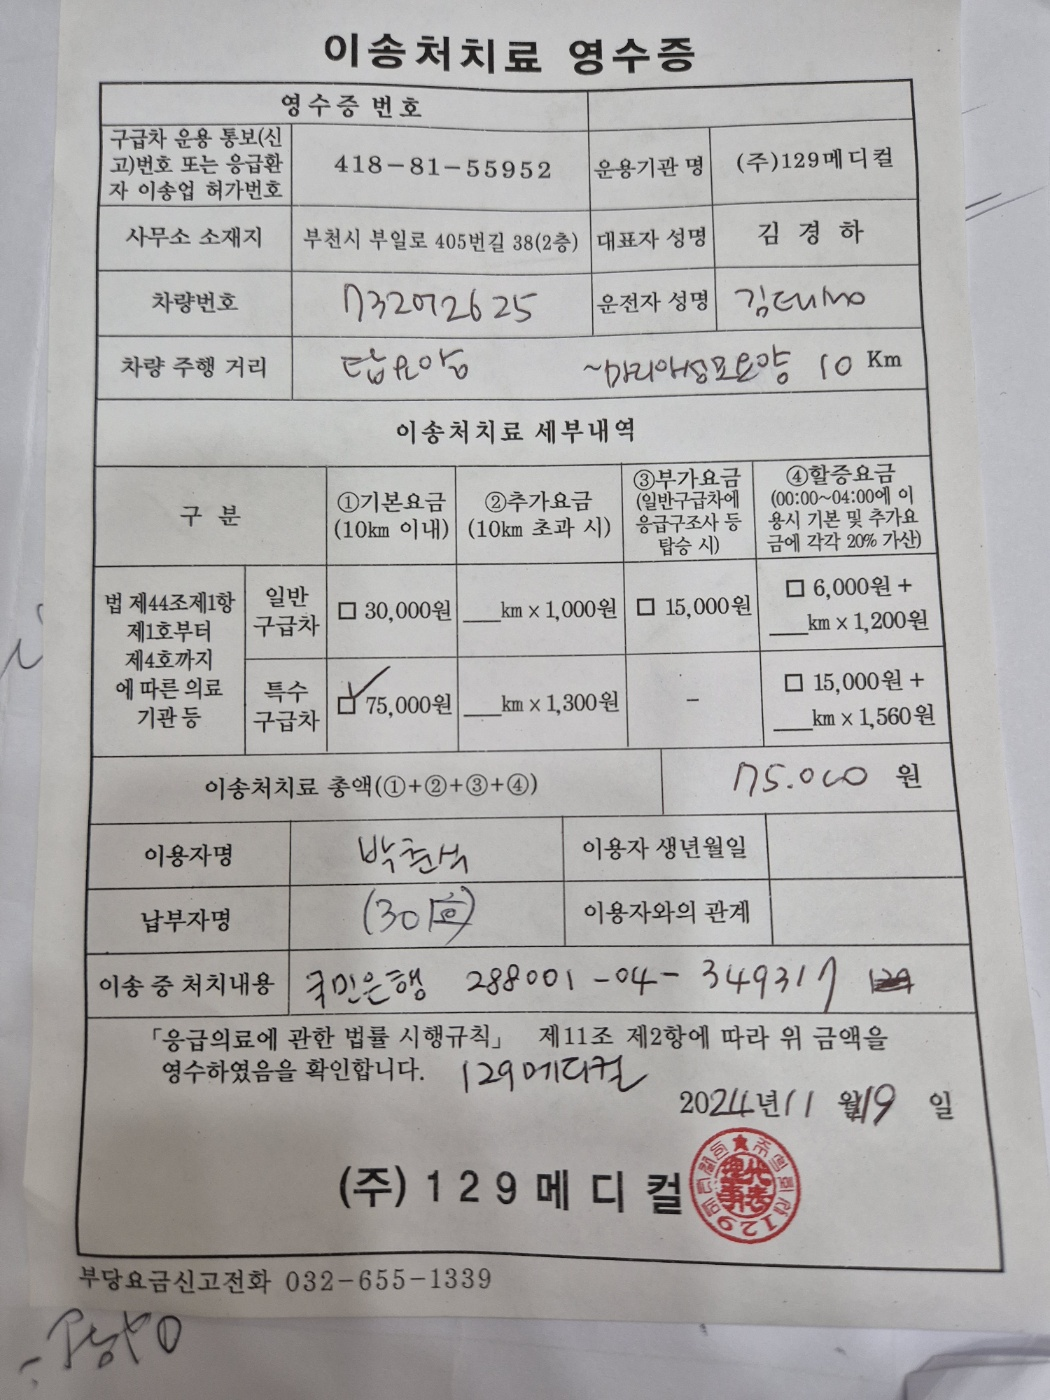 이송처치료 영수증
영수증 번호
구급차 운용 통보(신고)번호 또는 응급환자 이송업 허가번호 418-81-55952 운용기관 명 (주)129메디컬
사무소 소재지 부천시 부일로 405번길 38(2층) 대표자 성명 김 경 하
차량번호 운전자 성명
차량 주행 거리 10 Km
이송처치료 세부내역
구 분 ①기본요금 (10km 이내) ②추가요금 (10km 초과 시) ③부가요금 (일반구급차에 응급구조사 등 탑승 시) ④할증요금 (00:00~04:00에 이용시 기본 및 추가요금에 각각 20% 가산)
법 제44조제1항 제1호부터 제4호까지에 따른 의료기관 등
일반 구급차 □ 30,000원 ___km × 1,000원 □ 15,000원 □ 6,000원 + ___km × 1,200원
특수 구급차 ☑ 75,000원 ___km × 1,300원 - □ 15,000원 + ___km × 1,560원
이송처치료 총액(①+②+③+④) 75.000 원
이용자명 박춘석 이용자 생년월일
납부자명 이용자와의 관계
이송 중 처치내용 국민은행 288001-04-349317
「응급의료에 관한 법률 시행규칙」 제11조 제2항에 따라 위 금액을
영수하였음을 확인합니다. 129메디컬
2024년 11 월 19 일
(주) 1 2 9 메 디 컬
부당요금신고전화 032-655-1339